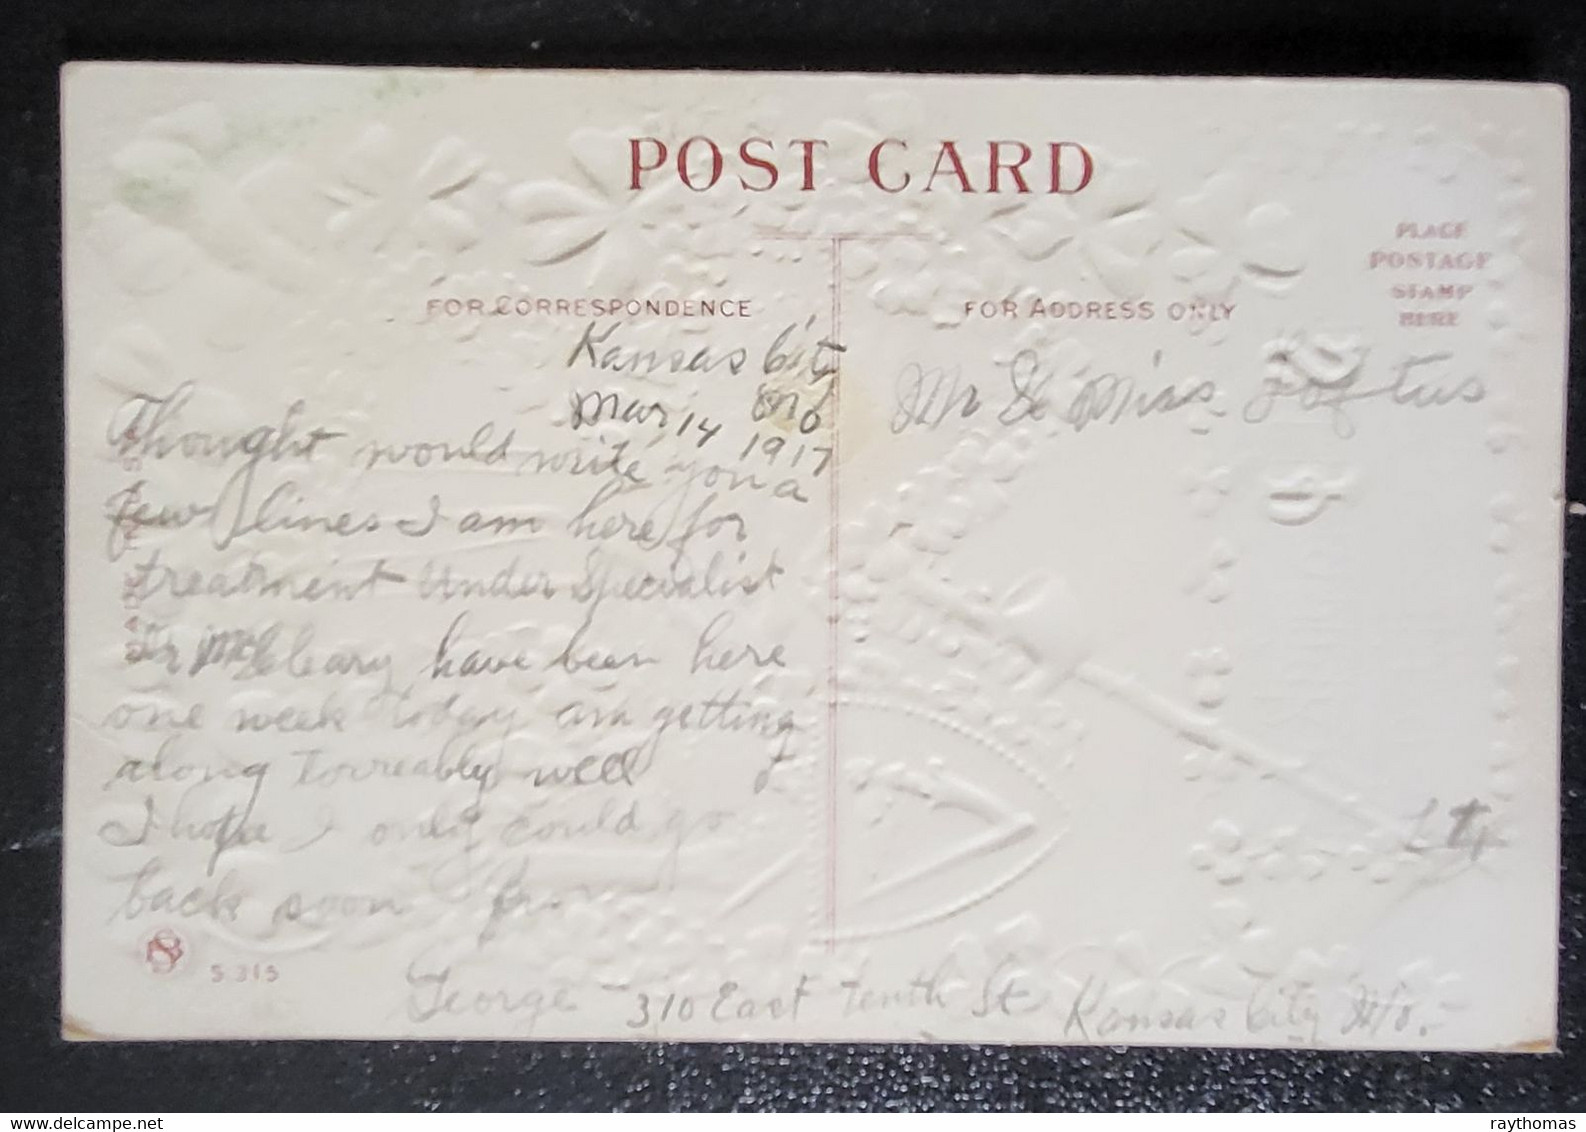 POST CARD
PLACE
POSTAGE
STAMP
HERE
FOR CORRESPONDENCE
FOR ADDRESS ONLY
Kansas City
Mo
Mar 14 1917
Thought would write you a
few lines I am here for
treatment Under Specialist
Dr McCleary have been here
one week today am getting
along Torreably well
I hope I only could go
back soon from
George 310 East Tenth St Kansas City Mo.
Mr & Miss Loftus
S 315
delcampe.net
raythomas